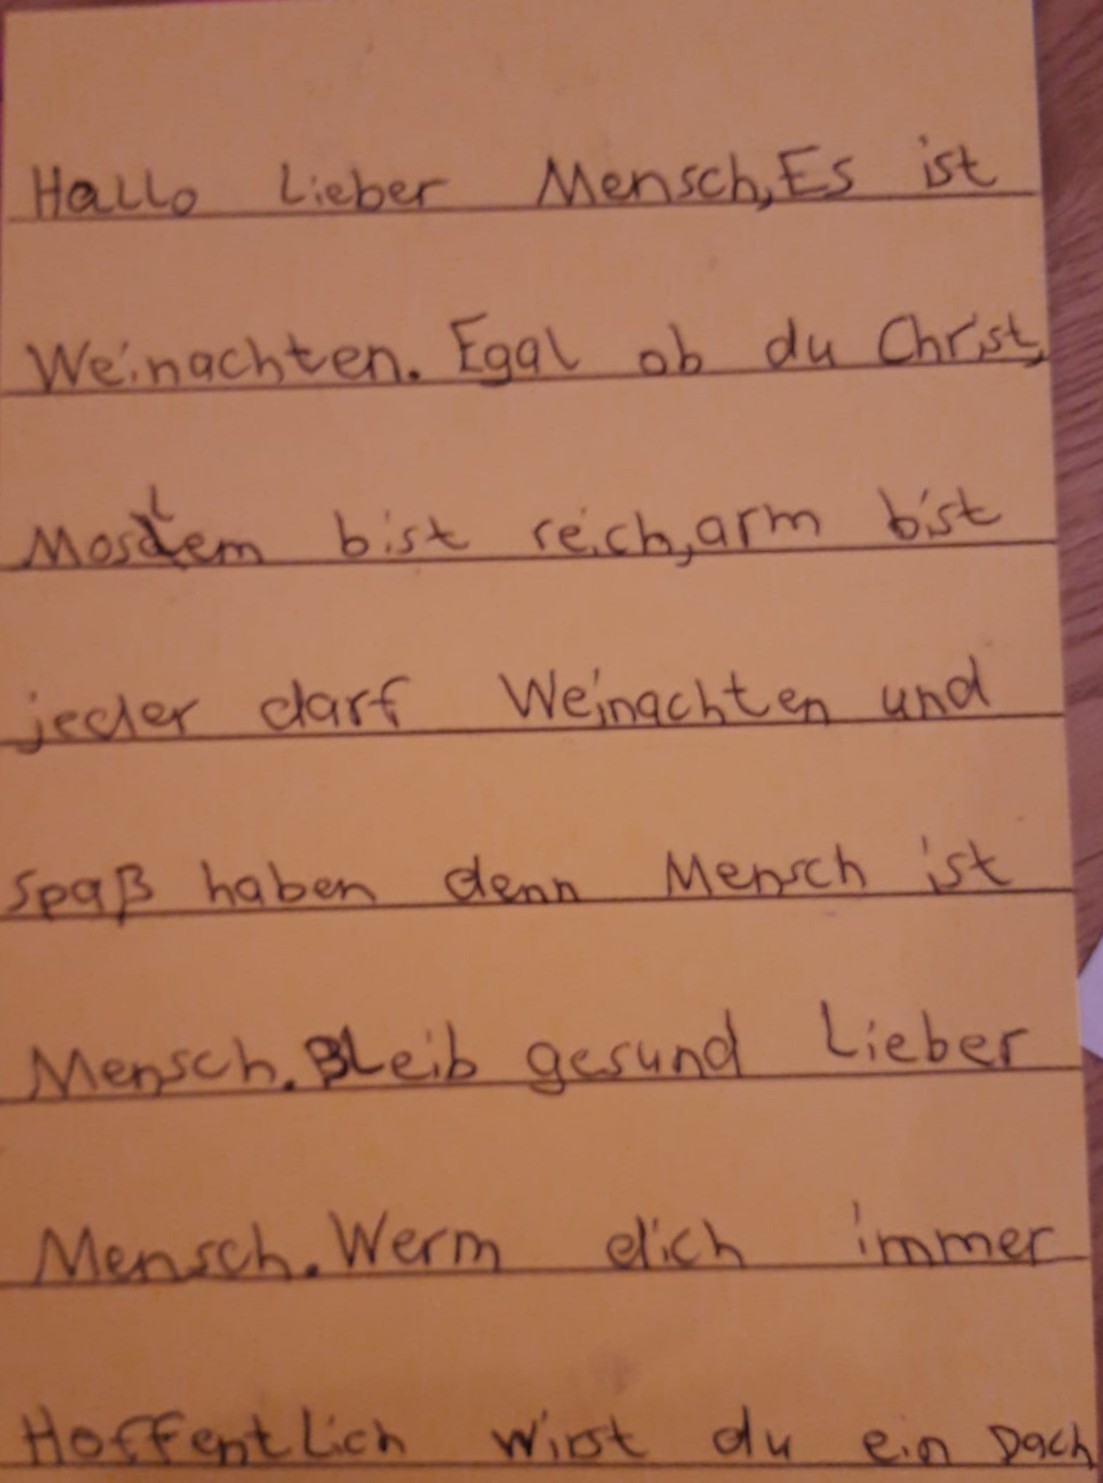 Hallo Lieber Mensch, Es ist
Weinachten. Egal ob du Christ,
Moslem bist reich, arm bist
jeder darf Weinachten und
Spaß haben denn Mensch ist
Mensch. Bleib gesund Lieber
Mensch. Werm dich immer
Hoffentlich wirst du ein Dach